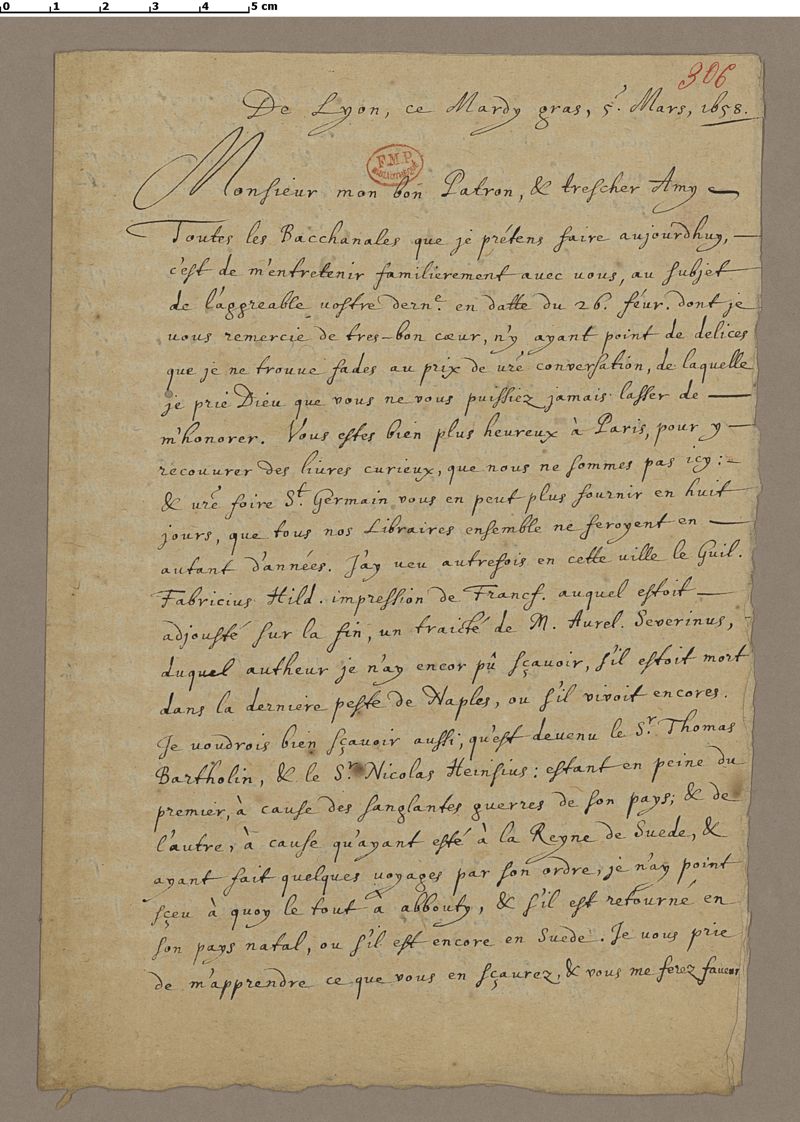 0 1 2 3 4 5 cm
306
De Lyon, ce Mardy gras, 5e. Mars, 1658.
F.M.P.
Monsieur mon bon Patron, & trescher Amy
Toutes les Bacchanales que je prétens faire aujourdhuy,
c'est de m'entretenir familierement avec vous, au subjet
de l'aggreable vostre derne. en datte du 26. févr. dont je
vous remercie de tres-bon cœur, n'y ayant point de delices
que je ne trouve fades au prix de vre conversation, de laquelle
je prie Dieu que vous ne vous puissiez jamais lasser de
m'honorer. Vous estes bien plus heureux à Paris, pour y
recouvrer des livres curieux, que nous ne sommes pas icy :
& vre foire St. Germain vous en peut plus fournir en huit
jours, que tous nos Libraires ensemble ne feroyent en
autant d'années. J'ay veu autrefois en cette ville le Guil.
Fabricius Hild. impression de Francf. auquel estoit
adjousté sur la fin, un traicté de M. Aurel. Severinus,
duquel autheur je n'ay encor pû sçavoir, s'il estoit mort
dans la derniere peste de Naples, ou s'il vivoit encores.
Je voudrois bien sçavoir aussi, qu'est devenu le Sr. Thomas
Bartholin, & le Sr. Nicolas Heinsius : estant en peine du
premier, à cause des sanglantes guerres de son pays ; & de
l'autre, à cause qu'ayant esté à la Reyne de Suede, &
ayant fait quelques voyages par son ordre, je n'ay point
sçeu à quoy le tout à abbouty, & s'il est retourné en
son pays natal, ou s'il est encore en Suede. Je vous prie
de m'apprendre ce que vous en sçaurez, & vous me ferez faveur